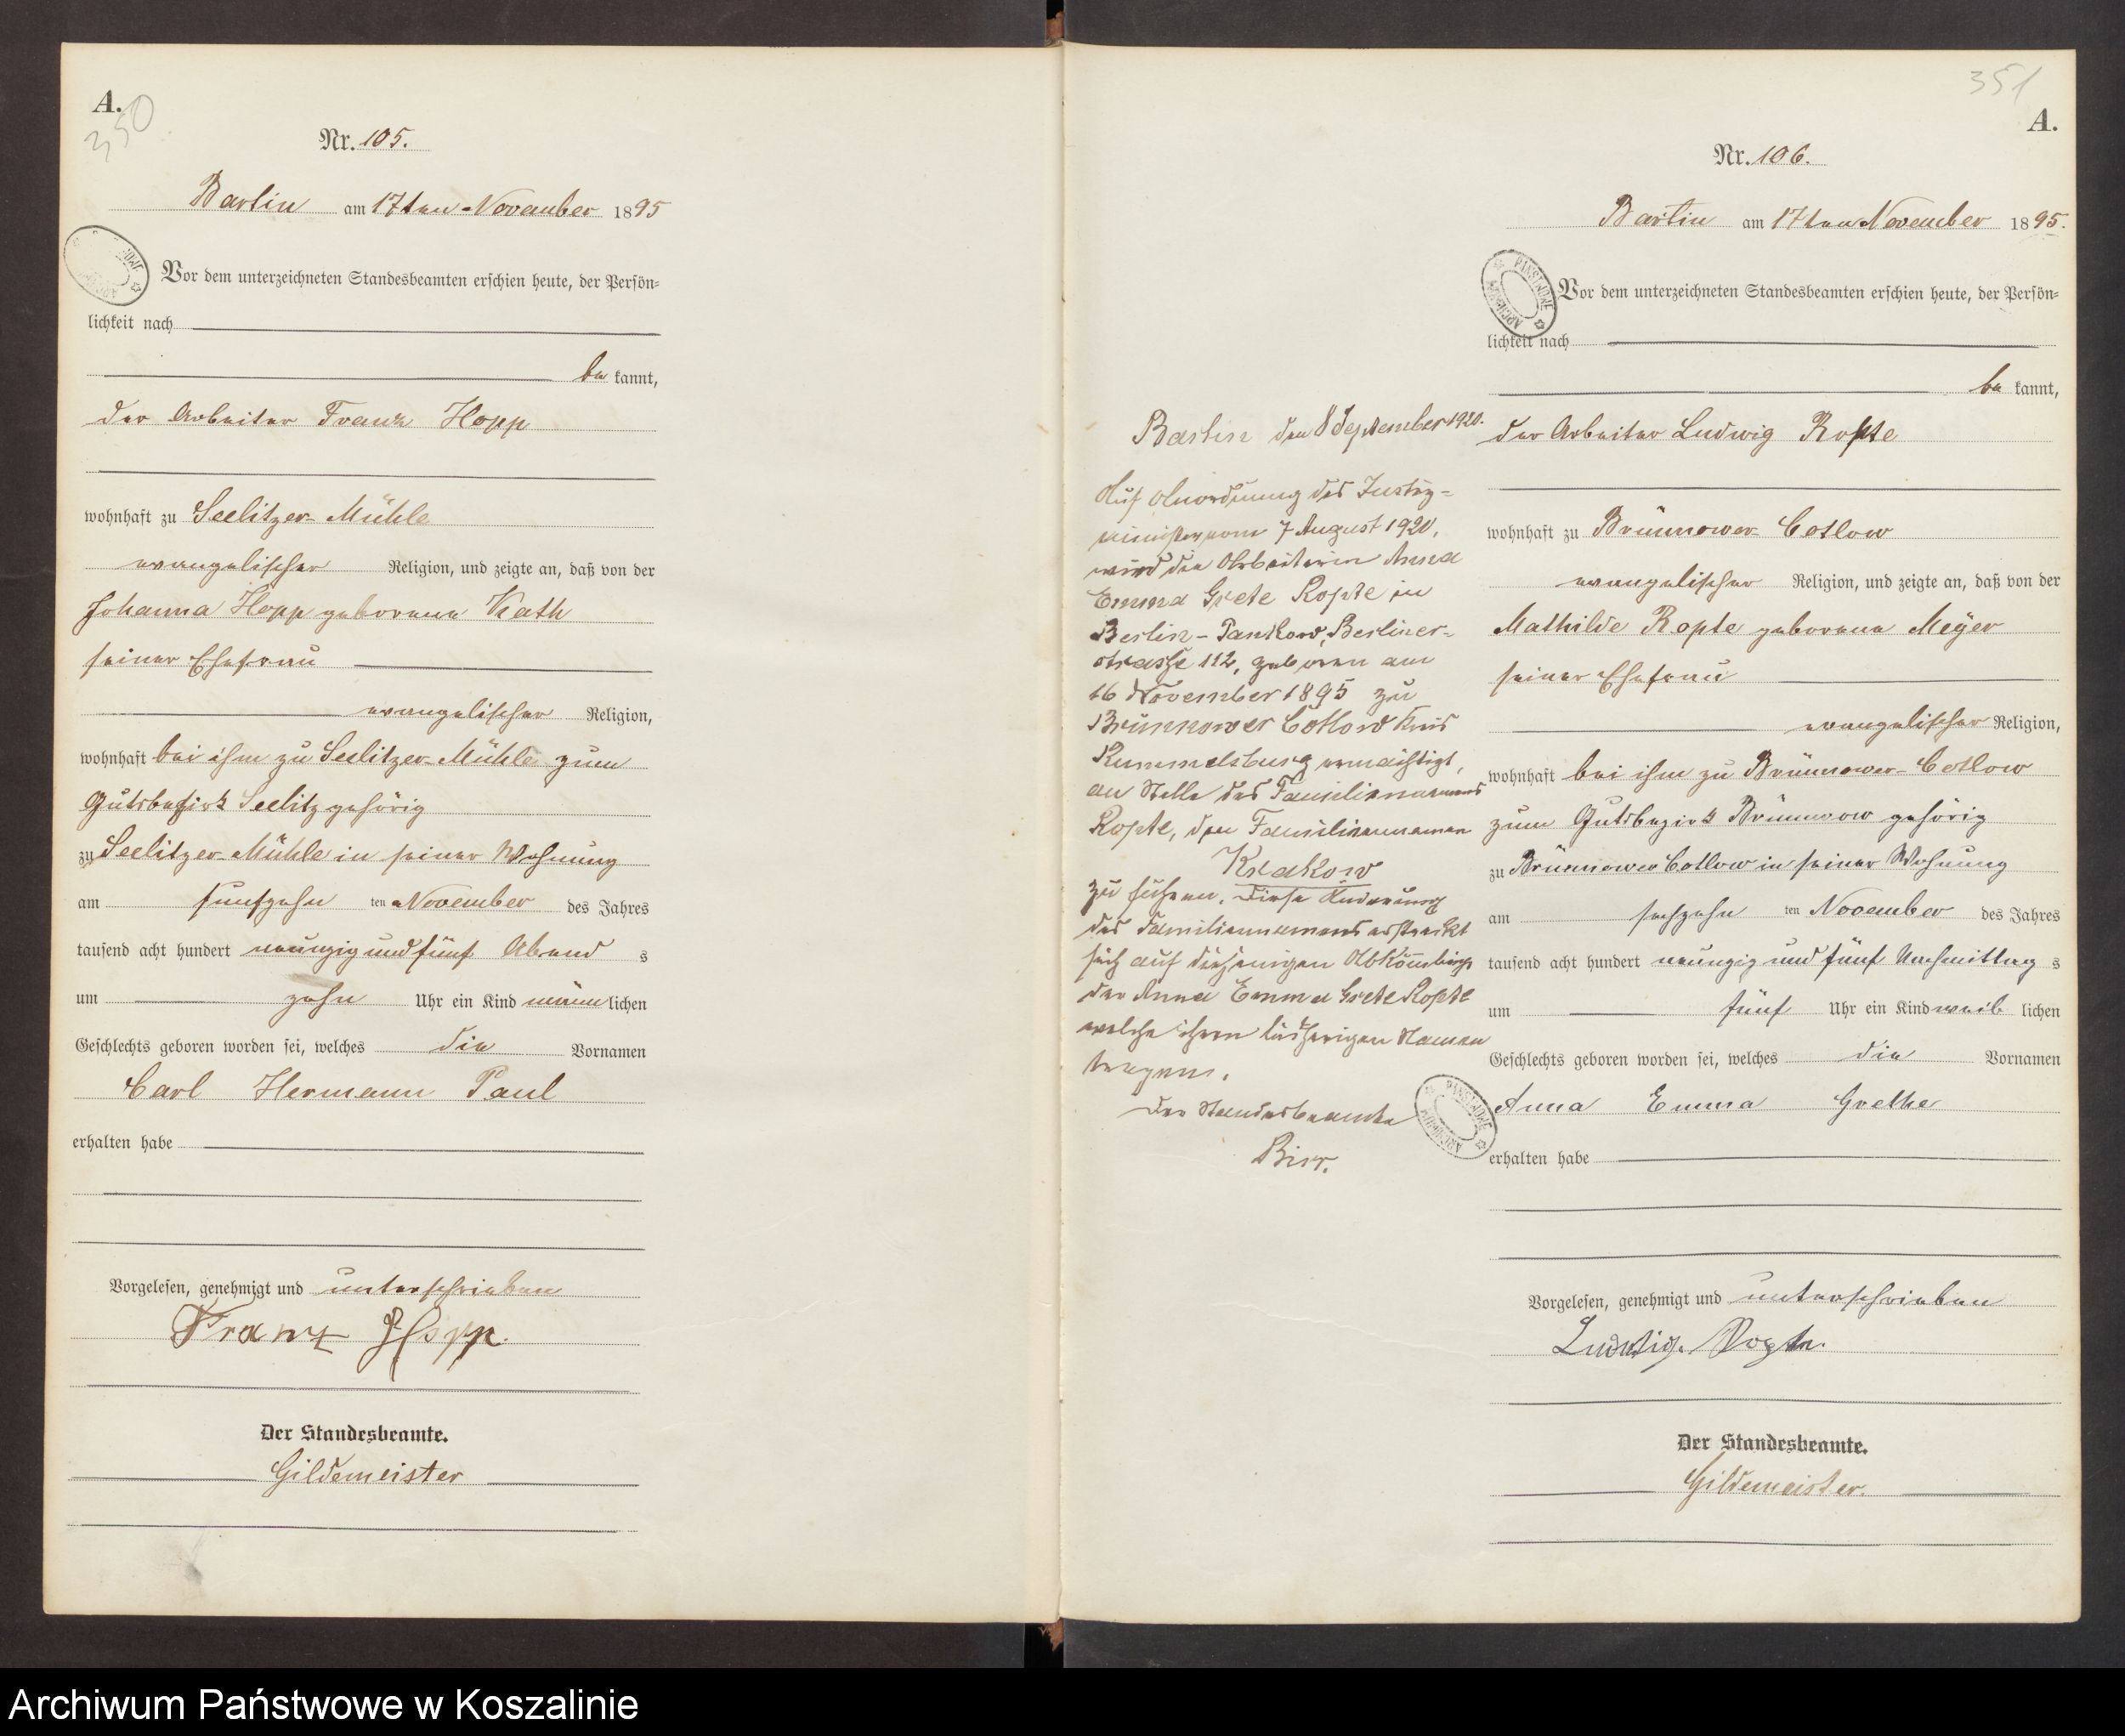 A.
350
Nr. 105.
Bartin am 17ten November 1895
Vor dem unterzeichneten Standesbeamten erschien heute, der Persön=
lichkeit nach
be kannt,
der Arbeiter Franz Hopp
wohnhaft zu Seelitzer-Mühle
evangelischer Religion, und zeigte an, daß von der
Johanna Hopp geborene Kath
seiner Ehefrau
evangelischer Religion,
wohnhaft bei ihm zu Seelitzer-Mühle zum
Gutsbezirk Seelitz gehörig
zu Seelitzer-Mühle in seiner Wohnung
am fünfzehn ten November des Jahres
tausend acht hundert neunzig und fünf Abend s
um zehn Uhr ein Kind männ lichen
Geschlechts geboren worden sei, welches die Vornamen
Carl Hermann Paul
erhalten habe
Vorgelesen, genehmigt und unterschrieben
Franz Hopp.
Der Standesbeamte.
Gildemeister
351
A.
Nr. 106.
Bartin am 17ten November 1895.
PAŃSTWOWE ARCHIWUM
Vor dem unterzeichneten Standesbeamten erschien heute, der Persön=
lichkeit nach
be kannt,
der Arbeiter Ludwig Ropte
wohnhaft zu Brünnower-Cotlow
evangelischer Religion, und zeigte an, daß von der
Mathilde Ropte geborene Meyer
seiner Ehefrau
evangelischer Religion,
wohnhaft bei ihm zu Brünnower-Cotlow
zum Gutsbezirk Brünnow gehörig
zu Brünnower Cotlow in seiner Wohnung
am sechzehn ten November des Jahres
tausend acht hundert neunzig und fünf Nachmittag s
um fünf Uhr ein Kind weib lichen
Geschlechts geboren worden sei, welches die Vornamen
Anna Emma Grethe
erhalten habe
Vorgelesen, genehmigt und unterschrieben
Ludwig Ropte.
Der Standesbeamte.
Gildemeister.
Bartin den 8 September 1920.
Auf Anordnung des Justiz=
minister vom 7 August 1920,
wird die Arbeiterin Anna
Emma Grete Ropte in
Berlin-Pankow, Berliner-
strasse 112, geboren am
16 November 1895 zu
Brünnower Cotlow Kreis
Rummelsburg ermächtigt,
an Stelle des Familiennamens
Ropte, den Familiennamen
Krakow
zu führen. Diese Änderung
des Familiennamens erstreckt
sich auf diejenigen Abkömlinge
der Anna Emma Grete Ropte
welche ihren bisherigen Namen
tragen.
Der Standesbeamte
PAŃSTWOWE ARCHIWUM
Archiwum Państwowe w Koszalinie